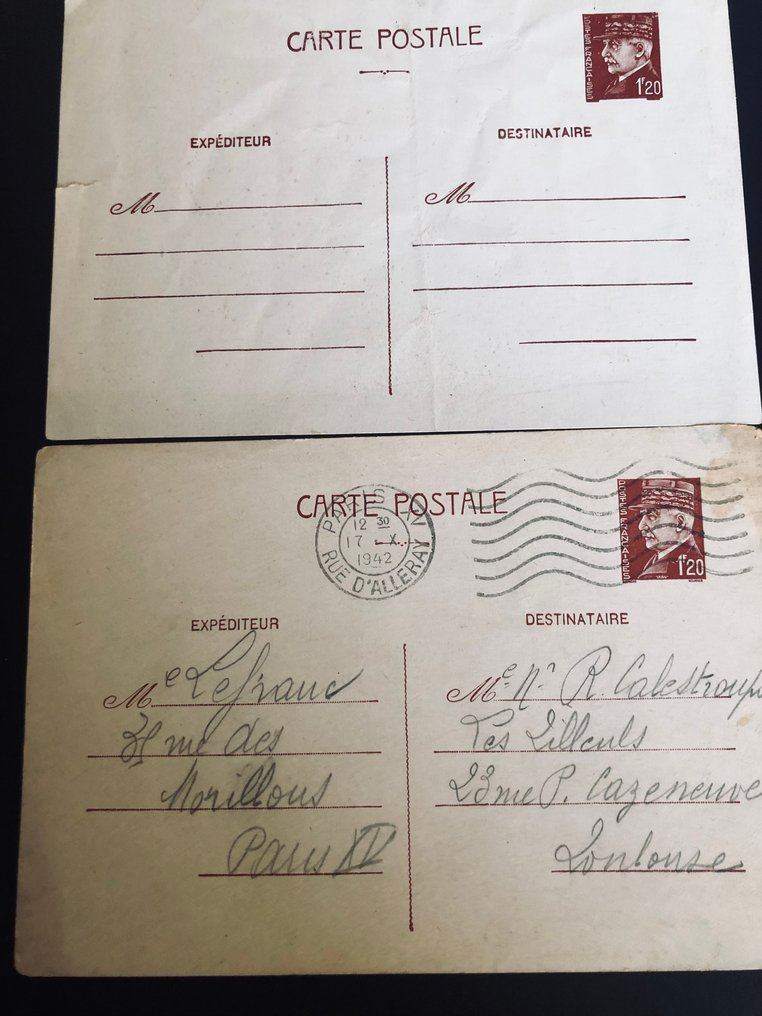 CARTE POSTALE
POSTES FRANÇAISES
1F20
EXPÉDITEUR
DESTINATAIRE
M
M
CARTE POSTALE
PARIS XV
12 30
17 - X
1942
RUE D'ALLERAY
POSTES FRANÇAISES
1F20
EXPÉDITEUR
DESTINATAIRE
Me Lefranc
Me R. Calestroup
rue des
Les Tilleuls
Morillons
23 rue P. Cazeneuve
Paris XV
Toulouse